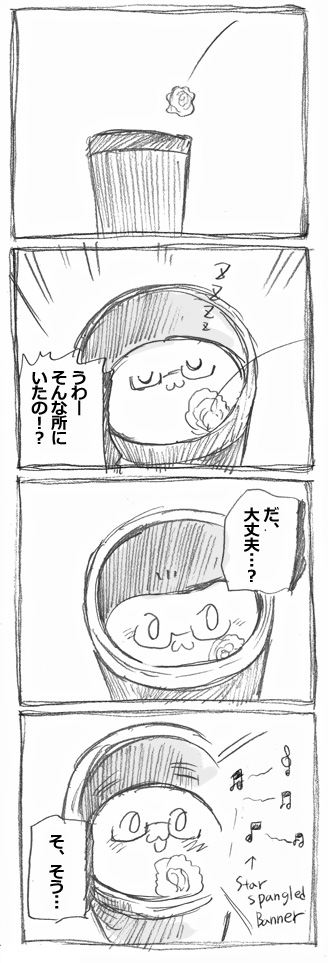 z
z
z
z
うわー
そんな所に
いたの!?
だ、
大丈夫…?
そ、そう…
Star
spangled
Banner